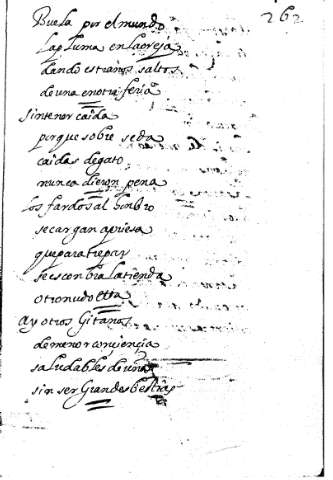 262
Buela por el mundo
la pluma en la oreja
dando estraños saltos
de una en otra feria
sin temor caida
porque sobre seda
caidas de gato
nunca dieron pena
los fardos al hombro
se cargan apriesa
que para trepar
es la tienda
otro nudo
ay otros Gitanos
de menor conciençia
saludables de uñas
sin ser Grandes bestias